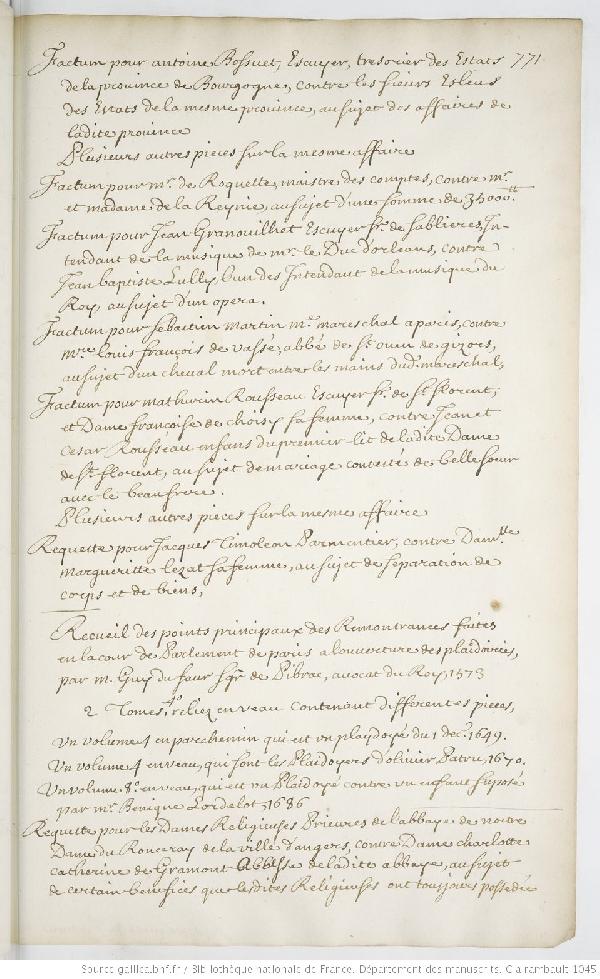 Factum pour antoine Bossuet, Escuyer, tresorier des Estats 771
de la province de Bourgogne, contre les sieurs Esleus
des Estats de la mesme province, au sujet des affaires de
ladite province
Plusieurs autres pieces sur la mesme affaire
Factum pour mr. de Roquette, maistre des comptes, contre mr.
et madame de la Reynie, au sujet d'une somme de 35000tt.
Factum pour Jean Granouilhet Escuyer sr. de Sablieres, In-
tendant de la musique de mr. le Duc d'orleans, contre
Jean baptiste Lully, l'un des Intendant de la musique du
Roy, au sujet d'un opera.
Factum pour sebastien martin me. mareschal a paris, contre
mre. louis françois de vassé, abbé de St. ouen de gizors,
au sujet d'un cheval mort entre les mains dud. mareschal,
Factum pour mathurin Rousseau Escuyer sr. de St. florent,
et Dame françoise de choisy sa femme, contre Jean et
Cesar Rousseau enfans du premier lit de ladite Dame
de St. florent, au sujet de mariage contesté de belle soeur
avec le beau frere.
Plusieurs autres pieces sur la mesme affaire
Requette pour Jacques Timoleon Parmentier, contre Damlle.
Margueritte lezat sa femme, au sujet de separation de
corps et de biens,
Recueil des points principaux des Remontrances faites
en la cour de Parlement de paris a l'ouverture des plaidoiries,
par m. Guy du faur sgr. de Pibrac, avocat du Roy, 1573
2 Tomes 4o. reliez en veau contenant differentes pieces,
Un volume 4 en parchemin qui est un playdoyé du 1 decb. 1649.
Un volume 4 en veau, qui sont les Plaidoyers d'olivier Patru, 1670.
Un volume 8o. en veau, qui est un Plaidoyé contre un enfant suposé
par me. Benigne Lordelot, 1686
Requette pour les Dames Religieuses Prieures de l'abbaye de nostre
Dame du Ronceray de la ville d'angers, contre Dame charlotte
catherine de Gramont Abbesse de laditte abbaye, au sujet
de certain benefices que lesdites Religieuses ont tousjours possedée
Source gallica.bnf.fr / Bibliothèque nationale de France. Département des manuscrits. Clairambault 1045